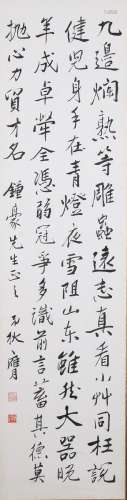 九邊爛熟等雕蟲遠志真看小艸同枉說
健兒身手在青燈夜雪阻山東雖然大器晚
年成卓犖全憑弱冠爭多識前言蓄其德莫
拋心力貿才名
鍾豪先生正之 于狄膺